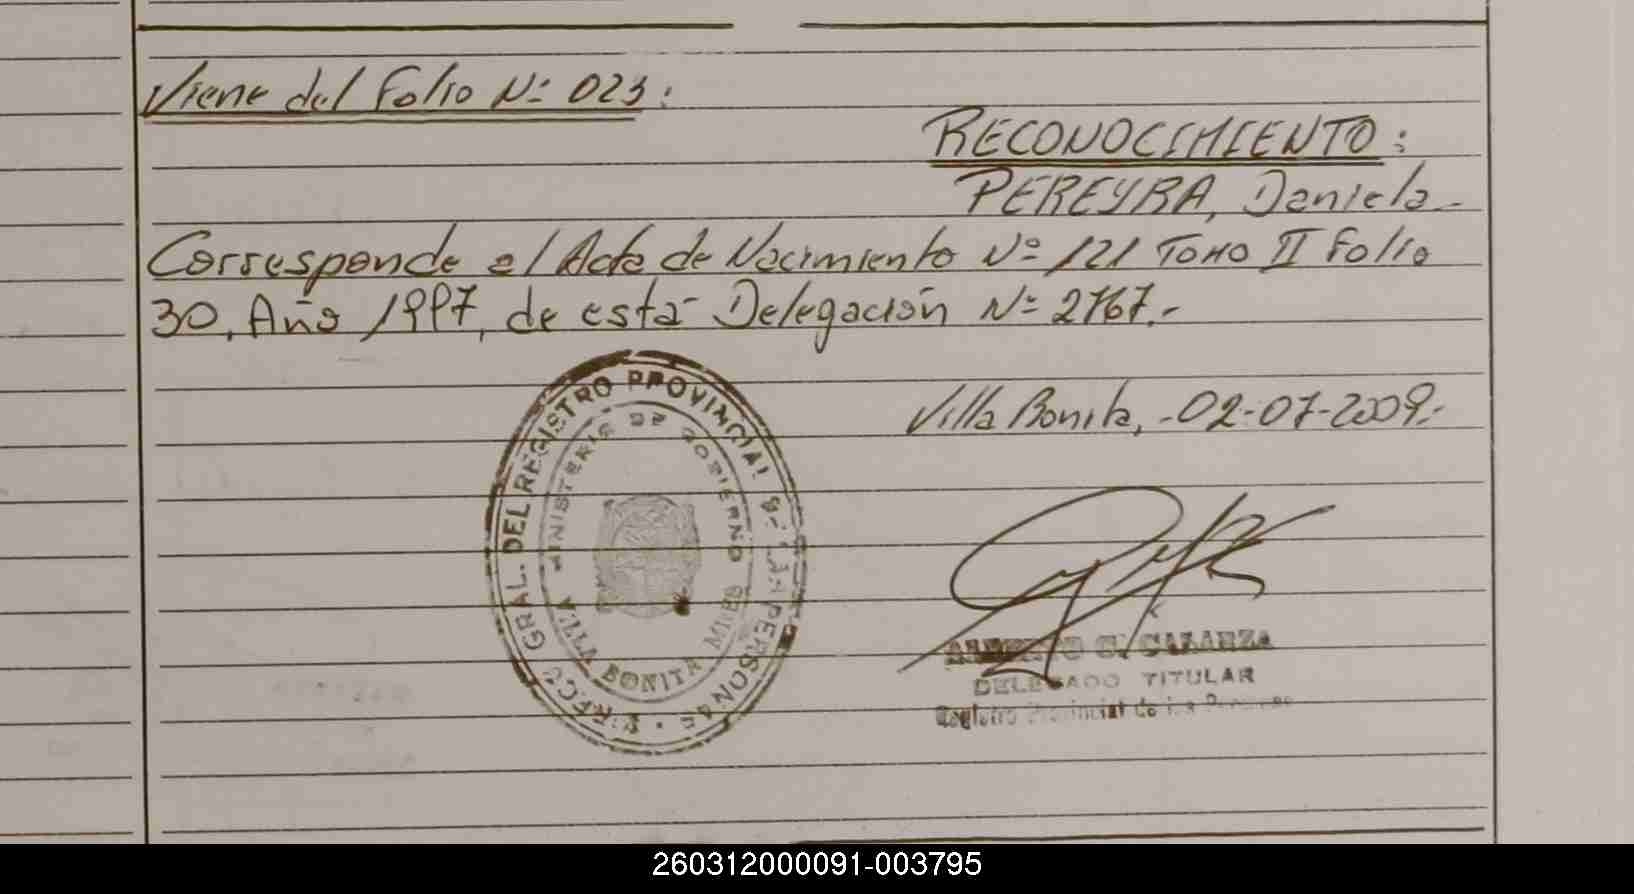 Viene del Folio Nº 023:
RECONOCIMIENTO:
PEREYRA, Daniela.-
Corresponde al Acta de Nacimiento Nº 121 Tomo II Folio
30, Año 1997, de esta Delegación Nº 2767.-
Villa Bonita, -02-07-2009.-
GRAL. DEL REGISTRO PROVINCIAL DE LAS PERSONAS
MINISTERIO DE GOBIERNO
VILLA BONITA MNES
G. CALARZA
DELEGADO TITULAR
Registro Provincial de las Personas
260312000091-003795